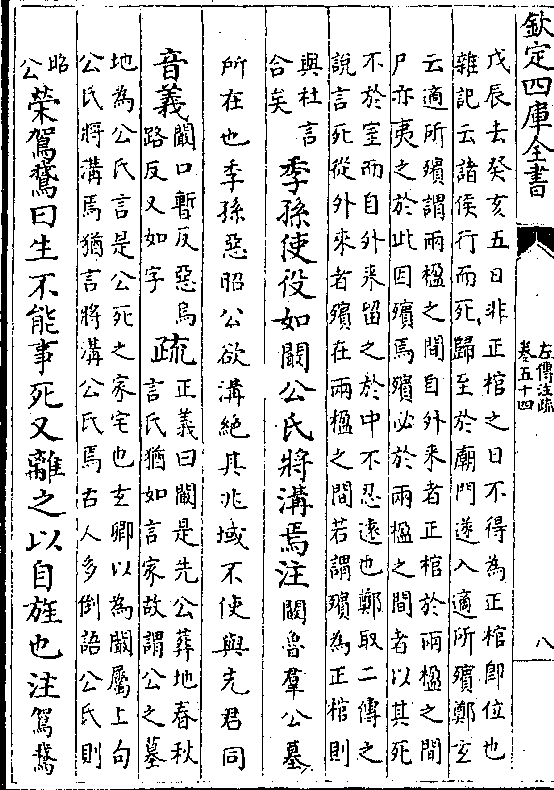 欽定四庫全書
左傳注疏
卷五十四
八
戊辰去癸亥五日非正棺之日不得為正棺即位也
雜記云諸侯行而死歸至於廟門遂入適所殯鄭玄
云適所殯謂兩楹之間自外來者正棺於兩楹之間
尸亦夷之於此因殯焉殯必於兩楹之間者以其死
不於室而自外來留之於中不忍遠也鄭取二傳之
說言死從外來者殯在兩楹之間若謂殯為正棺則
與杜言
合矣
季孫使役如闞公氏將溝焉注闞魯羣公墓
所在也季孫惡昭公欲溝絶其兆域不使與先君同
音義闞口暫反惡烏
路反又如字
疏正義曰闞是先公葬地春秋
言氏猶如言家故謂公之墓
地為公氏言是公死之家宅也玄卿以為闞屬上句
公氏將溝焉猶言將溝公氏焉古人多倒語公氏則
昭
公
榮駕鵞曰生不能事死又離之以自旌也注駕鵞